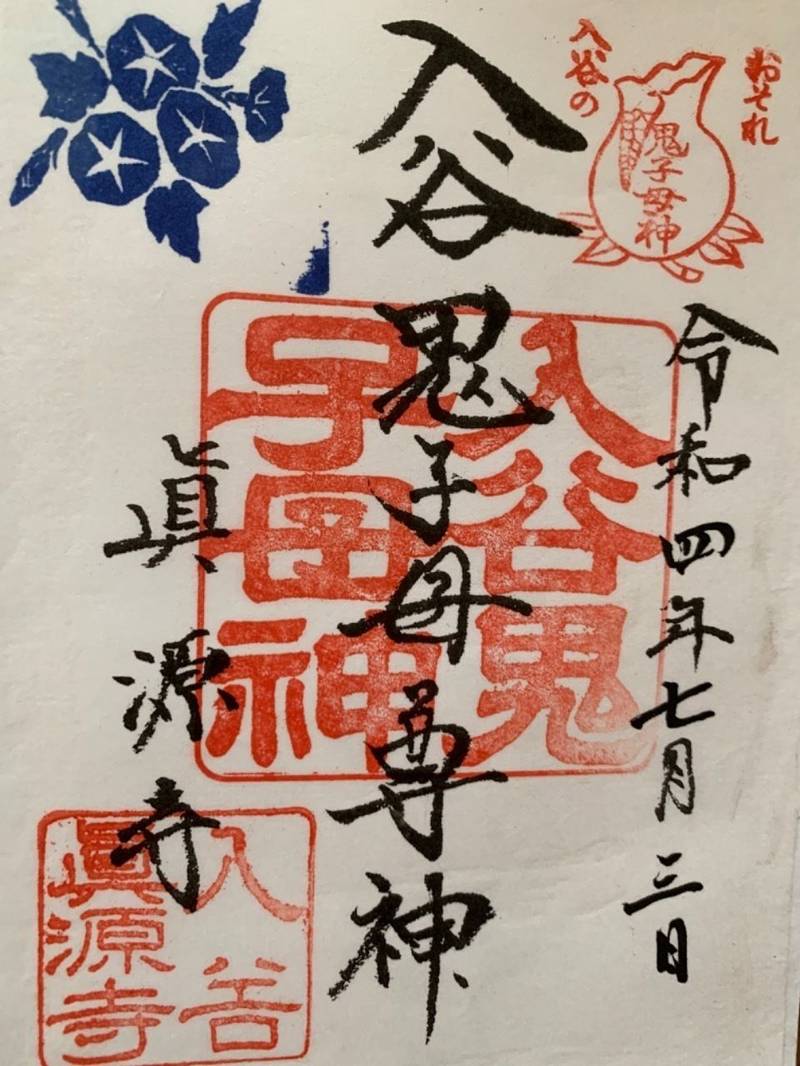 おそれ
入谷の
鬼子母神
令和四年七月三日
入谷鬼子母尊神
眞源寺
入谷鬼
子母神
入谷
眞源寺